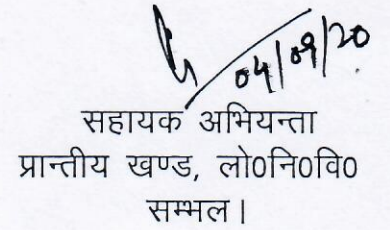 04/09/20
सहायक अभियन्ता
प्रान्तीय खण्ड, लो0नि0वि0
सम्भल।